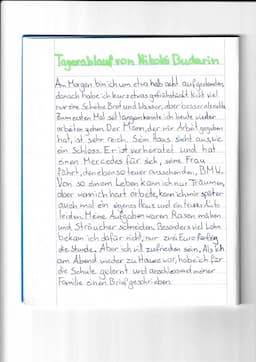 Tagesablauf von Nikolei Budarin
Am Morgen bin ich um etwa halb acht aufgestanden,
danach habe ich kurz etwas gefrühstückt. Nicht viel
nur eine Scheibe Brot und Wasser, aber besser als nichts.
Zum ersten Mal seit langem konnte ich heute wieder
arbeiten gehen. Der Mann, der mir Arbeit gegeben
hat, ist sehr reich. Sein Haus sieht aus wie
ein Schloss. Er ist verheiratet und hat
einen Mercedes für sich, seine Frau
fährt, den ebenso teuer aussehenden, BMW.
Von so einem Leben kann ich nur träumen,
aber wenn ich hart arbeite, kann ich mir später
auch mal ein eigenes Haus und ein teures Auto
leisten. Meine Aufgaben waren Rasen mähen
und Sträucher schneiden. Besonders viel Lohn
bekam ich dafür nicht, nur zwei Euro fünfzig
die Stunde. Aber ich will zufrieden sein. Als ich
am Abend wieder zu Hause war, habe ich für
die Schule gelernt und anschliessend meiner
Familie einen Brief geschrieben.